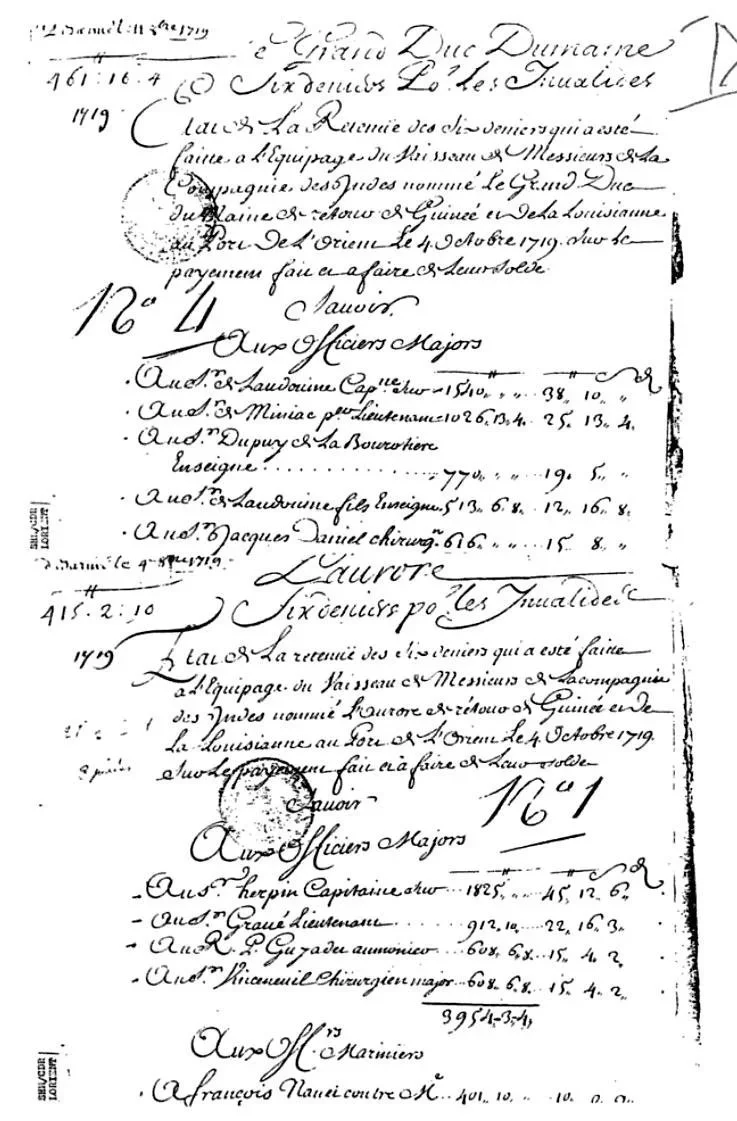 Le Grand Duc Dumaine
461 : 16 . 4
Six deniers Po.r Les Inualides
1719
Etat de La Retenüe des Six deniers qui a esté
faitte a L'Equipage du Vaisseau de Messieurs de La
Compagnie des Indes nommé Le Grand Duc
du Maine de retour de Guinée et de La Louisianne
au Port De L'Orient Le 4 Octobre 1719. Sur Le
payement fait et a faire de Leur Solde
Sauoir
No 4
Aux Officiers Majors
Au S.r de Laudouine Cap.ne 1540 „ „ 38 „ 10 „ „
Au S.r de Miniac p.er Lieutenant 1026 „ 13 „ 4 . 25 „ 13 „ 4
Au S.r Dupuy de La Bourotiere
Enseigne . . . . . . . . . . 770 „ „ 19 „ 5 „ „
Au S.r de Laudouine fils Enseigne 513 „ 6 „ 8 . 12 „ 16 „ 8
Au S.r Jacques Daniel chirurgn 616 „ „ 15 „ 8 „ „
SHR/CDR
LORIENT
1719
L'aurore
415 . 2 : 10
Six deniers po.r les Inualides
1719
Etat de La retenüe des Six deniers qui a esté faitte
a L'Equipage du Vaisseau de Messieurs de La compagnie
des Indes nommé L'aurore de retour de Guinée et de
La Louisianne au Port de L'Orient Le 4 Octobre 1719
Sur Le payement fait et a faire de Leur Solde
Sauoir
No 1
Aux Officiers Majors
Au S.r herpin Capitaine 1825 „ „ 45 „ 12 „ 6
Au S.r Graué Lieutenant . . . . . 912 „ 10 . . 22 „ 16 „ 3
Au R. P. aumonier . . 608 „ 6 „ 8 . . 15 „ 4 „ 2
Au S.r Chirurgien major . . 608 „ 6 „ 8 . . 15 „ 4 „ 2
3954 „ 3 „ 4
Aux Off.rs Mariniers
SHR/CDR
LORIENT
A françois contre M.e . . 401 „ 10 „ „ 10 „ 0 „ 9